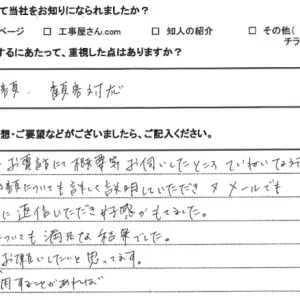 て当社をお知りになられましたか?
ページ □ 工事屋さん.com □ 知人の紹介 □ その他(
チラ
するにあたって、重視した点はありますか?
額、顧客対応
想・ご要望などがございましたら、ご記入ください。
お電話にて概要等お伺いしたところ ていねいな対
額についても詳しく説明していただき メールでも
に返信いただき好感がもてました。
についても満足な結果でした。
お願いしたいと思ってます。
用することがあれば